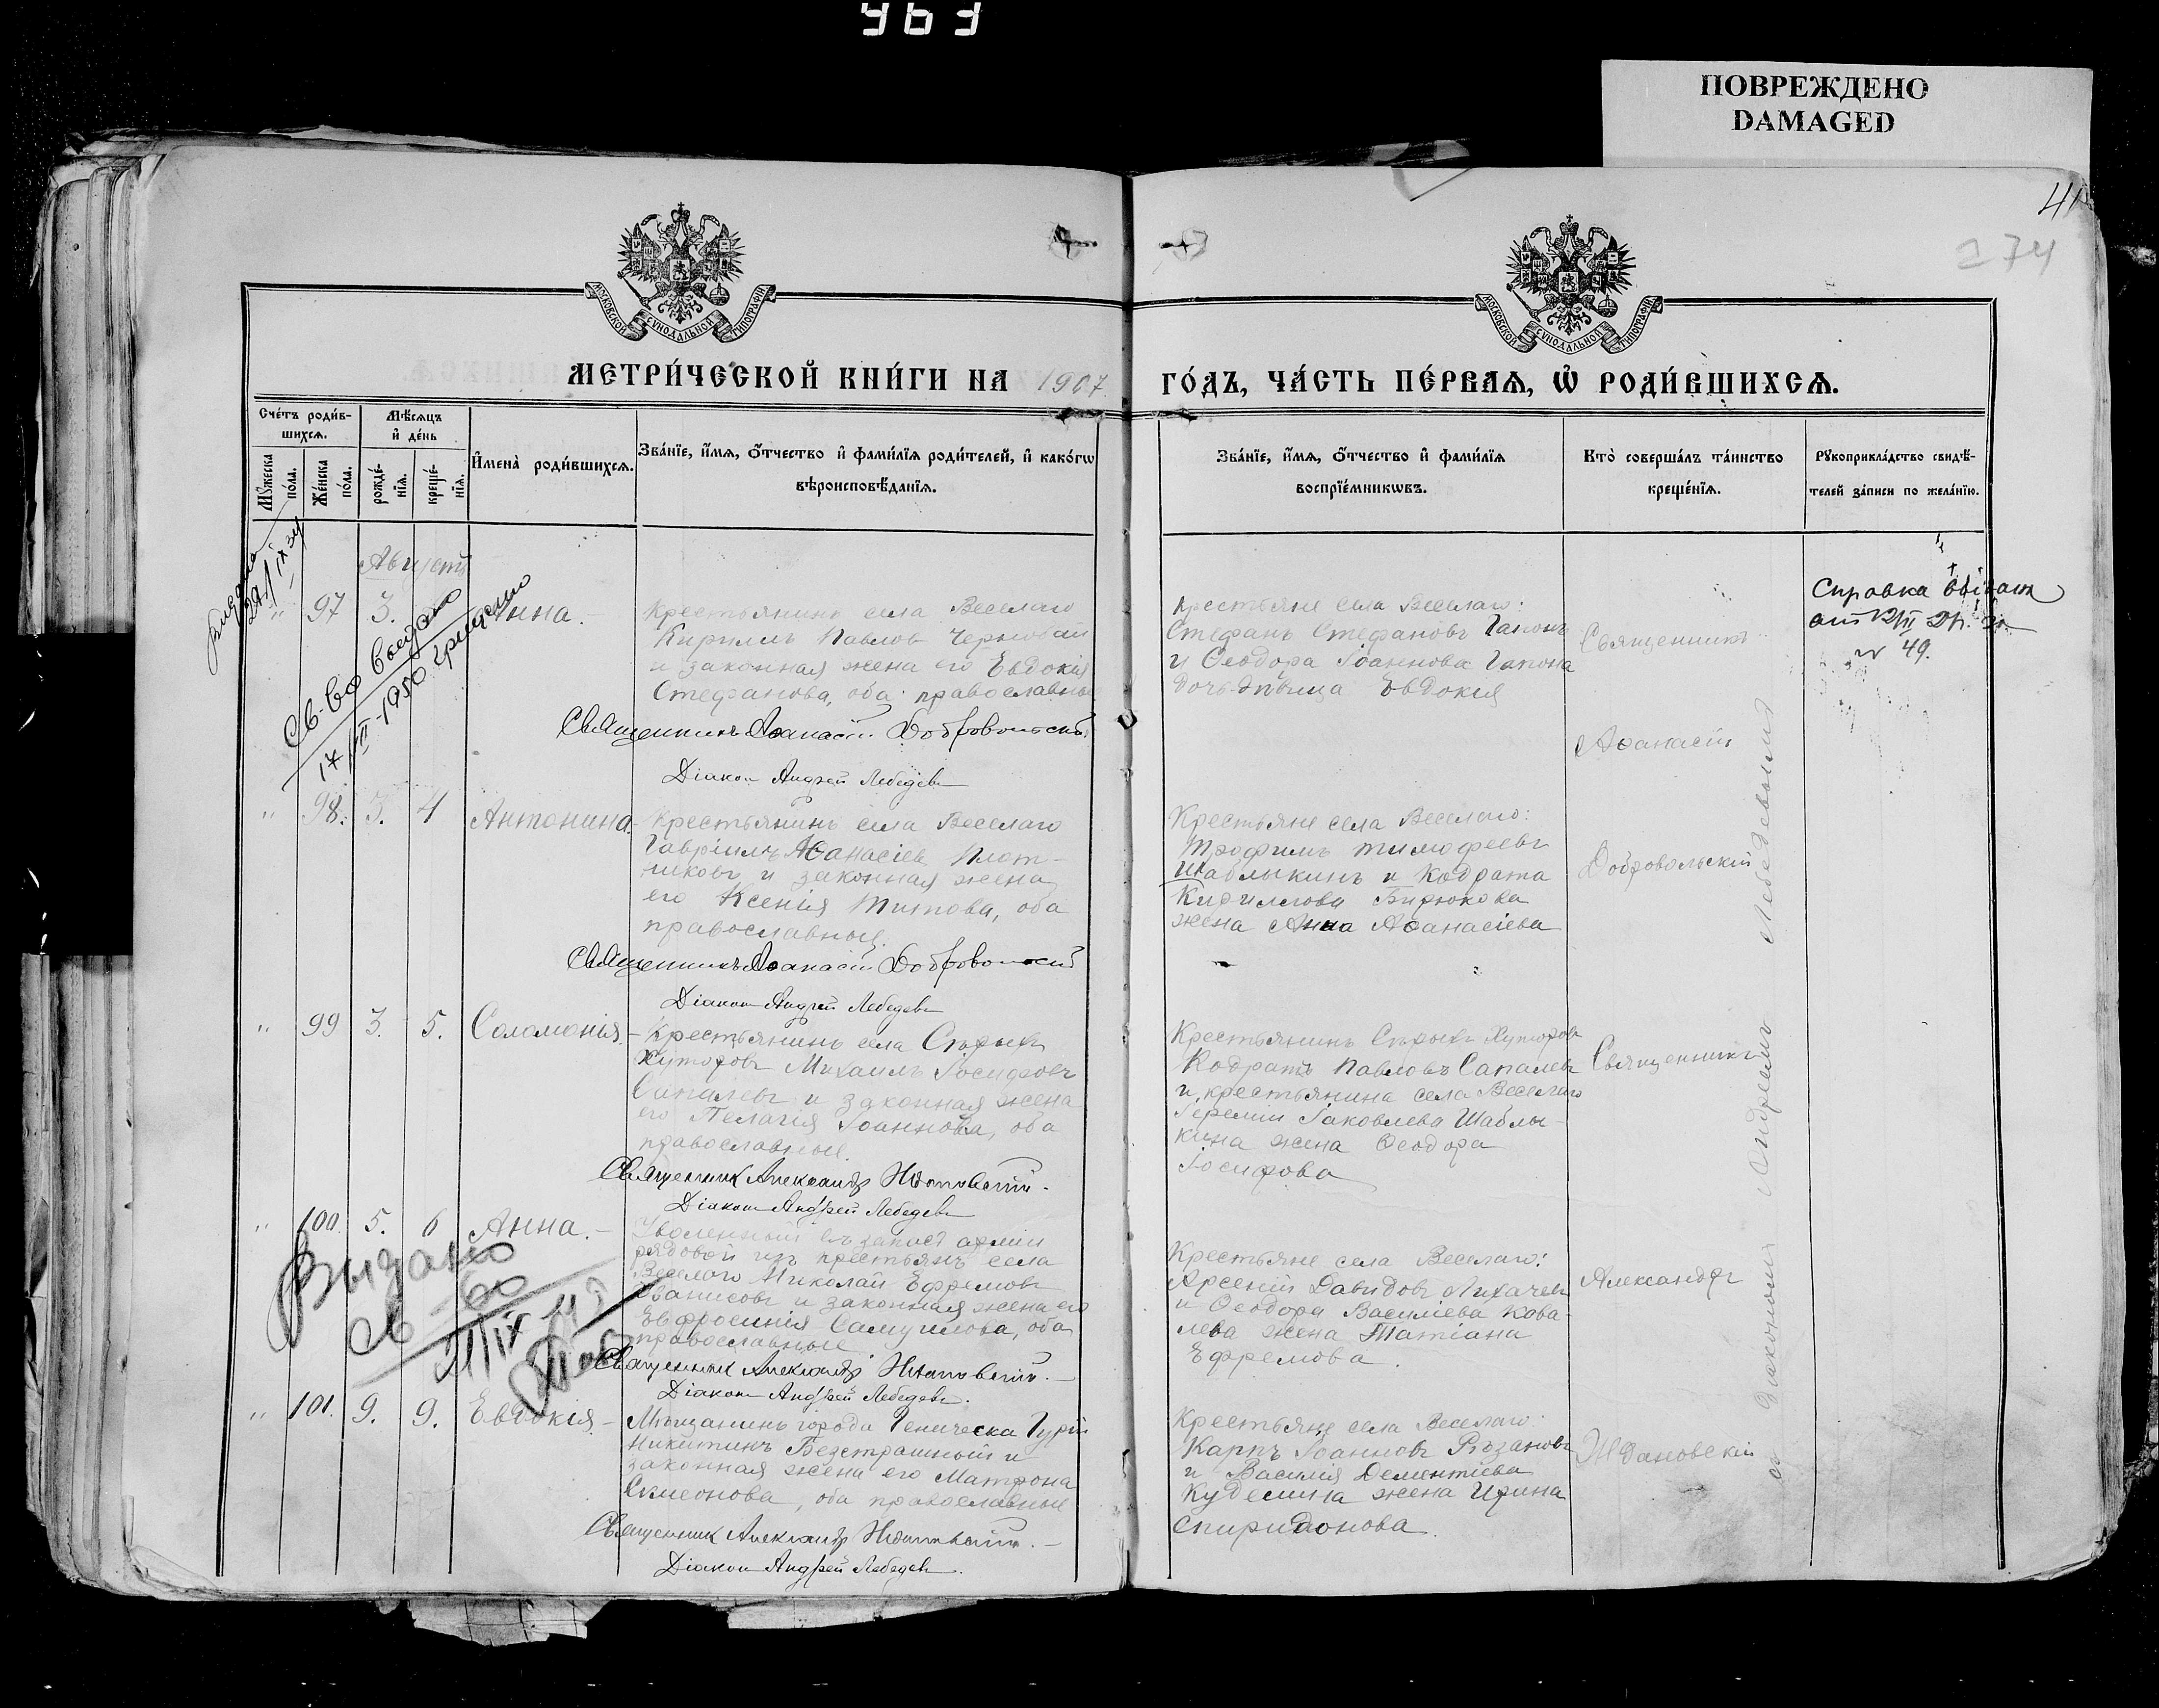 963
ПОВРЕЖДЕНО
DAMAGED
41
274
МОСКОВСКОЙ СѴНОДАЛЬНОЙ ТИПОГРАФІИ
МОСКОВСКОЙ СѴНОДАЛЬНОЙ ТИПОГРАФІИ
МЕТРИ́ЧЕСКОЙ КНИ́ГИ НА 1907 ГО́ДЪ, ЧА́СТЬ ПЕ́РВАѦ, Ѽ РОДИ́ВШИХСѦ.
Сче́тъ роди́в-
шихсѧ.
Мѣ́сѧцъ
и҆ де́нь
Мꙋ́жеска по́ла.
Же́нска по́ла.
рожде́-
нїѧ.
креще́-
нїѧ.
И҆мена̀ роди́вшихсѧ.
Зва́нїе, и҆́мѧ, ѻ҆́тчество и҆ фами́лїѧ роди́телей, и҆ како́гѡ
вѣроисповѣ́данїѧ.
Зва́нїе, и҆́мѧ, ѻ҆́тчество и҆ фами́лїѧ
воспрїе́мникѡвъ.
Кто̀ соверша́лъ та́инство
креще́нїѧ.
Рꙋкоприкла́дство свидѣ́-
телей за́писи по жела́нїю.
Августъ
" 97 3. Анна.
Крестьянинъ села Веселаго
Кириллъ Павловъ Черновай
и законная жена его Евдокія
Стефанова, оба православные
Священникъ Аѳанасій Добровольскій
Діакон Андрей Лебедевъ
Крестьяне села Веселаго:
Стефанъ Стефановъ Гапонъ
и Ѳеодора Іоаннова Гапона
дочь-дѣвица Евдокія
Священникъ
Аѳанасій
Добровольскій
Справка
от
№ 49.
Св-во выдано
17/II-1950
" 98. 3. 4 Антонина.
Крестьянинъ села Веселаго
Гавріилъ Аѳанасіевъ Плот-
никовъ и законная жена
его Ксенія Титова, оба
православные.
Священникъ Аѳанасій Добровольскій
Діакон Андрей Лебедевъ
Крестьяне села Веселаго:
Трофимъ Тимофеевъ
Шаблыкинъ и Кодрата
Кириллова Бирюкова
жена Анна Аѳанасіева
" 99 3. 5. Саломонія.
Крестьянинъ села Сѣрыхъ
Хуторовъ Михаилъ Іосифовъ
Сапалевъ и законная жена
его Пелагія Іоаннова, оба
православные.
Священник Александр Ждановскій.
Діакон Андрей Лебедевъ
Крестьянинъ Сѣрыхъ Хуторовъ
Кодратъ Павловъ Сапалевъ
и крестьянина села Веселаго
Іереміи Іаковлева Шаблы-
кина жена Ѳеодора
Іосифова
Священникъ
Александръ
Ждановскій
съ діакономъ Андреемъ Лебедевымъ
" 100. 5. 6 Анна.
Уволенный въ запасъ арміи
рядовой изъ крестьянъ села
Веселаго Николай Ефремовъ
и законная жена его
Евфросинія Самуилова, оба
православные
Священник Александр Ждановскій.
Діакон Андрей Лебедевъ.
Крестьяне села Веселаго:
Арсеній Давидовъ Лихачевъ
и Ѳеодора Василіева Кова-
лева жена Татіана
Ефремова.
Выдано
св-во
" 101. 9. 9. Евдокія.
Мѣщанинъ города Геническа Гурій
Никитинъ Безстрашный и
законная жена его Матрона
Симеонова, оба православные
Священник Александр Ждановскій.
Діакон Андрей Лебедевъ.
Крестьяне села Веселаго:
Карпъ Іоанновъ Рѣзановъ
и Василія Дементіева
Куделина жена Ирина
Спиридонова.